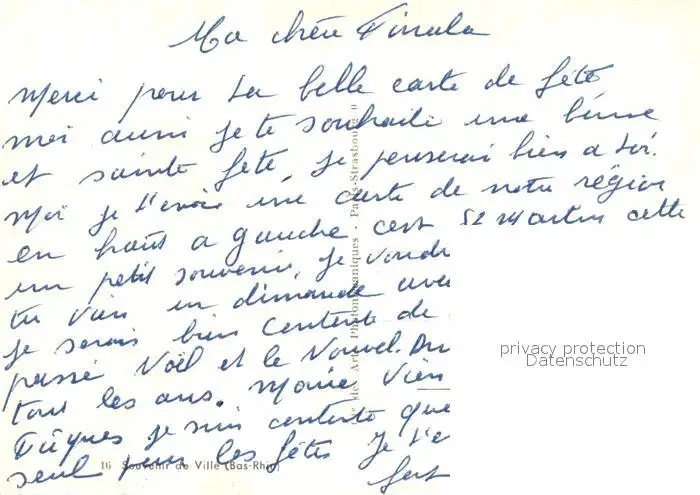 Ma chère
Merci pour ta belle carte de fête
moi aussi je te souhaite une bonne
et sainte fête, je penserai bien a toi.
Moi je t'envoie une carte de notre région
en haut a gauche c'est St Martin cette
un petit souvenir, je voudr
tu vien un dimanche avec
je serais bien contente de
passé Noël et le Nouvel. An
tout les ans. Marie vien
Pâques je suis contente que
seul pour les fêtes je t'e
fort
16 Souvenir de Ville (Bas-Rhin)
de Arts Photomécaniques - Paris-Strasbourg
privacy protection
Datenschutz